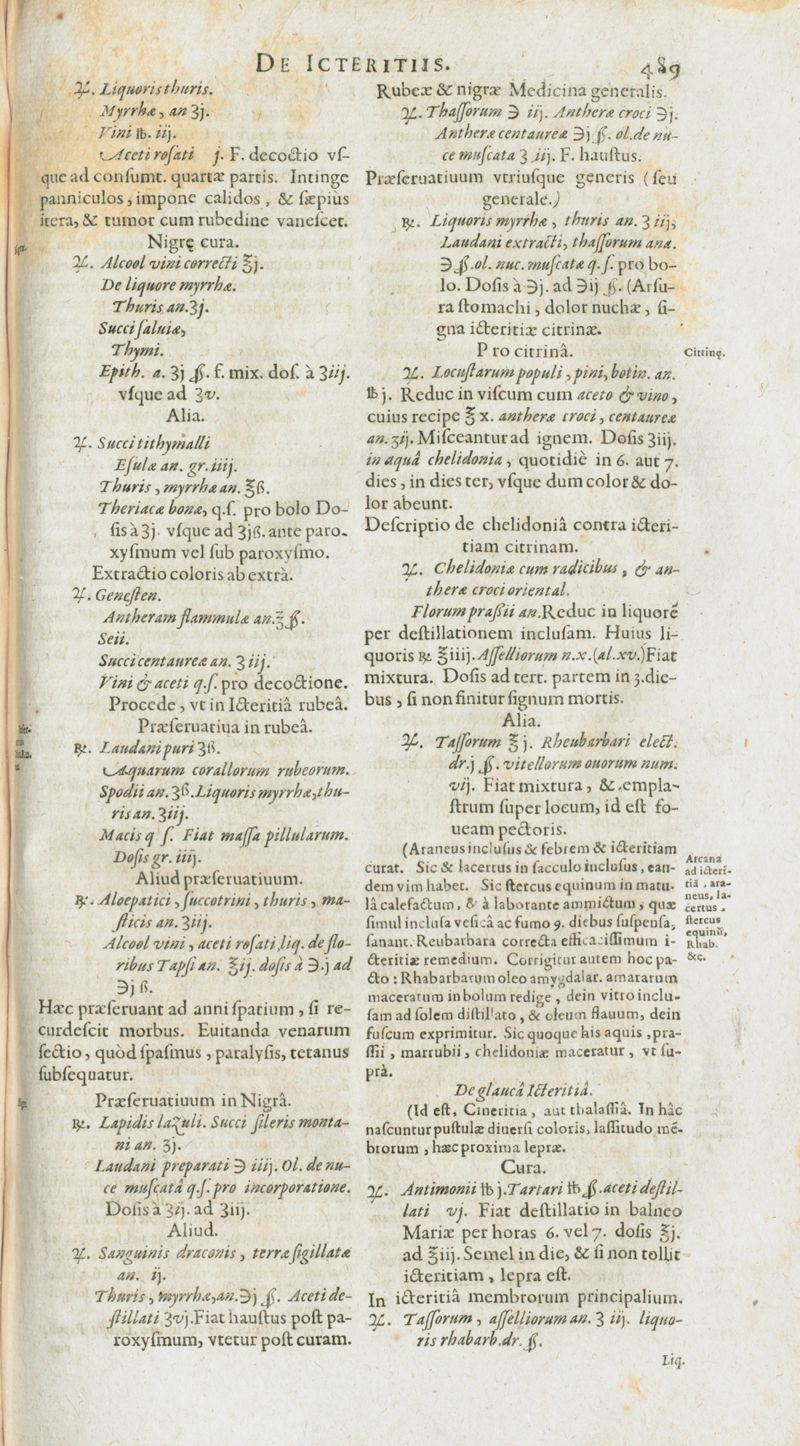 DE ICTERITIIS.
489
♃. Liquoris thuris.
Myrrhæ, an ʒj.
Vini ℔. iij.
Aceti rosati j. F. decoctio vs-
que ad consumt. quartæ partis. Intinge
panniculos, impone calidos, & sæpius
itera, & tumor cum rubedine vanescet.
Nigrę cura.
♃. Alcool vini correcti ℥j.
De liquore myrrhæ.
Thuris an. ʒj.
Succi saluiæ,
Thymi.
Epith. a. ʒj ß. f. mix. dos. à ʒiij.
vsque ad ʒv.
Alia.
♃. Succi tithymalli
Esulæ an. gr. iiij.
Thuris, myrrhæ an. ℥ß.
Theriacæ bonæ, q.s. pro bolo Do-
sis à ʒj. vsque ad ʒjß. ante paro-
xysmum vel sub paroxysmo.
Extractio coloris ab extrà.
♃. Genesten.
Antheram flammulæ an. ℥ ß.
Seii.
Succi centaureæ an. ʒ iij.
Vini & aceti q.s. pro decoctione.
Procede, vt in Icteritiâ rubeâ.
Præseruatiua in rubeâ.
℞. Laudani puri ʒß.
Aquarum corallorum rubeorum.
Spodii an. ʒß. Liquoris myrrhæ, thu-
ris an. ʒiij.
Macis q s. Fiat massa pillularum.
Dosis gr. iiij.
Aliud præseruatiuum.
℞. Aloepatici, succotrini, thuris, ma-
sticis an. ʒiij.
Alcool vini, aceti rosati, liq. de flo-
ribus Tapsi an. ℥ij. dosis à ℈.j ad
℈j ß.
Hæc præseruant ad anni spatium, si re-
curdescit morbus. Euitanda venarum
sectio, quòd spasmus, paralysis, tetanus
subsequatur.
Præseruatiuum in Nigrâ.
℞. Lapidis lazuli. Succi sileris monta-
ni an. ʒj.
Laudani preparati ℈ iiij. Ol. de nu-
ce muscatâ q.s. pro incorporatione.
Dosis à ʒij. ad ʒiij.
Aliud.
♃. Sanguinis draconis, terræ sigillatæ
an. ij.
Thuris, myrrhæ, an. ℈j ß. Aceti de-
stillati ʒvj. Fiat haustus post pa-
roxysmum, vtetur post curam.
Rubeæ & nigræ Medicina generalis.
♃. Thassorum ℈ iij. Antheræ croci ℈j.
Antheræ centaureæ ℈j ß. ol. de nu-
ce muscata ʒ iij. F. haustus.
Præseruatiuum vtriusque generis (seu
generale.)
℞. Liquoris myrrhæ, thuris an. ʒ iij,
Laudani extracti, thassorum ana.
℈ ß. ol. nuc. muscatæ q. s. pro bo-
lo. Dosis à ℈j. ad ℈ij ß. (Arsu-
ra stomachi, dolor nuchæ, si-
gna icteritiæ citrinæ.
Pro citrinâ.
Citrinę.
♃. Locustarum populi, pini, botin. an.
℔ j. Reduc in viscum cum aceto & vino,
cuius recipe ℥ x. antheræ croci, centaureæ
an. ʒij. Misceantur ad ignem. Dosis ʒiij.
in aquâ chelidonia, quotidiè in 6. aut 7.
dies, in dies ter, vsque dum color & do-
lor abeunt.
Descriptio de chelidoniâ contra icteri-
tiam citrinam.
♃. Chelidoniæ cum radicibus, & an-
theræ croci oriental.
Florum prassii an. Reduc in liquorē
per destillationem inclusam. Huius li-
quoris ℞ ℥iiij. Asselliorum n.x. (al.xv.) Fiat
mixtura. Dosis ad tert. partem in 3. die-
bus, si non finitur signum mortis.
Alia.
♃. Tassorum ℥ j. Rheubarbari elect.
dr. j ß. vitellorum ouorum num.
vij. Fiat mixtura, & empla-
strum super locum, id est fo-
ueam pectoris.
(Araneus inclusus & febrem & icteritiam
curat. Sic & lacertus in sacculo inclusus, ean-
dem vim habet. Sic stercus equinum in matu-
lâ calefactum, & à laborante ammictum, quæ
simul inclusa vesicâ ac fumo 9. diebus suspensa,
sanant. Reubarbara correcta efficacissimum i-
cteritiæ remedium. Corrigitur autem hoc pa-
cto: Rhabarbarum oleo amygdalar. amararum
maceratum in bolum redige, dein vitro inclu-
sam ad solem distillato, & oleum flauum, dein
fuscum exprimitur. Sic quoque his aquis, pra-
ssii, marrubii, chelidoniæ maceratur, vt su-
prà.
Arcana
ad icteri-
tiā, ara-
neus, la-
certus,
stercus
equinū,
Rhab.
&c.
De glaucâ Icteritiâ.
(Id est, Cineritia, aut thalassiâ. In hâc
nascuntur pustulæ diuersi coloris, lassitudo mē-
brorum, hæc proxima lepræ.
Cura.
♃. Antimonii ℔ j. Tartari ℔ ß. aceti destil-
lati vj. Fiat destillatio in balneo
Mariæ per horas 6. vel 7. dosis ℥j.
ad ℥iij. Semel in die, & si non tollit
icteritiam, lepra est.
In icteritiâ membrorum principalium.
♃. Tassorum, asselliorum an. ʒ iij. liquo-
ris rhabarb. dr. ß.
Liq.